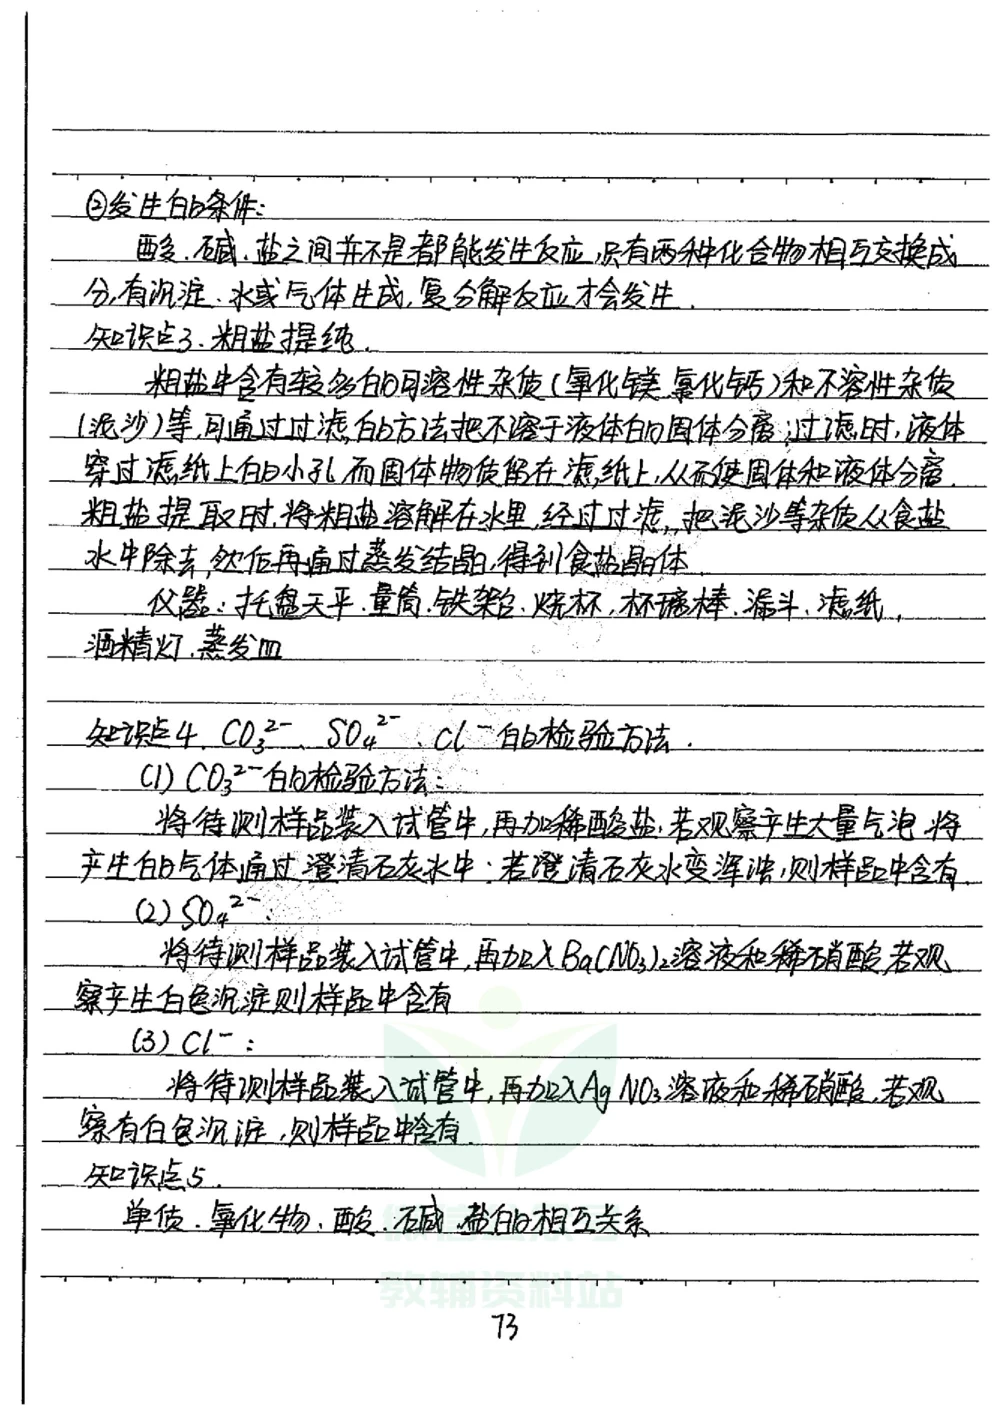 ②发生的条件：
酸、碱、盐之间并不是都能发生反应，只有两种化合物相互交换成
分，有沉淀、水或气体生成，复分解反应才会发生．
知识点3、粗盐提纯．
粗盐中含有较多的可溶性杂质（氯化镁、氯化钙）和不溶性杂质
（泥沙）等，可通过过滤的方法把不溶于液体的固体分离；过滤时，液体
穿过滤纸上的小孔，而固体物质留在滤纸上，从而使固体和液体分离．
粗盐提取时，将粗盐溶解在水里，经过过滤，把泥沙等杂质从食盐
水中除去，然后再通过蒸发结晶，得到食盐晶体．
仪器：托盘天平、量筒、铁架台、烧杯、玻璃棒、漏斗、滤纸、
酒精灯、蒸发皿
知识点4、CO₃²⁻、SO₄²⁻、Cl⁻的检验方法．
(1) CO₃²⁻的检验方法：
将待测样品装入试管中，再加稀酸盐，若观察产生大量气泡，将
产生的气体通过澄清石灰水中：若澄清石灰水变浑浊，则样品中含有．
(2) SO₄²⁻：
将待测样品装入试管中，再加入Ba(NO₃)₂溶液和稀硝酸，若观
察产生白色沉淀则样品中含有
(3) Cl⁻：
将待测样品装入试管中，再加入AgNO₃溶液和稀硝酸，若观
察有白色沉淀，则样品中含有．
知识点5．
单质、氧化物、酸、碱、盐的相互关系
教辅资料站
73